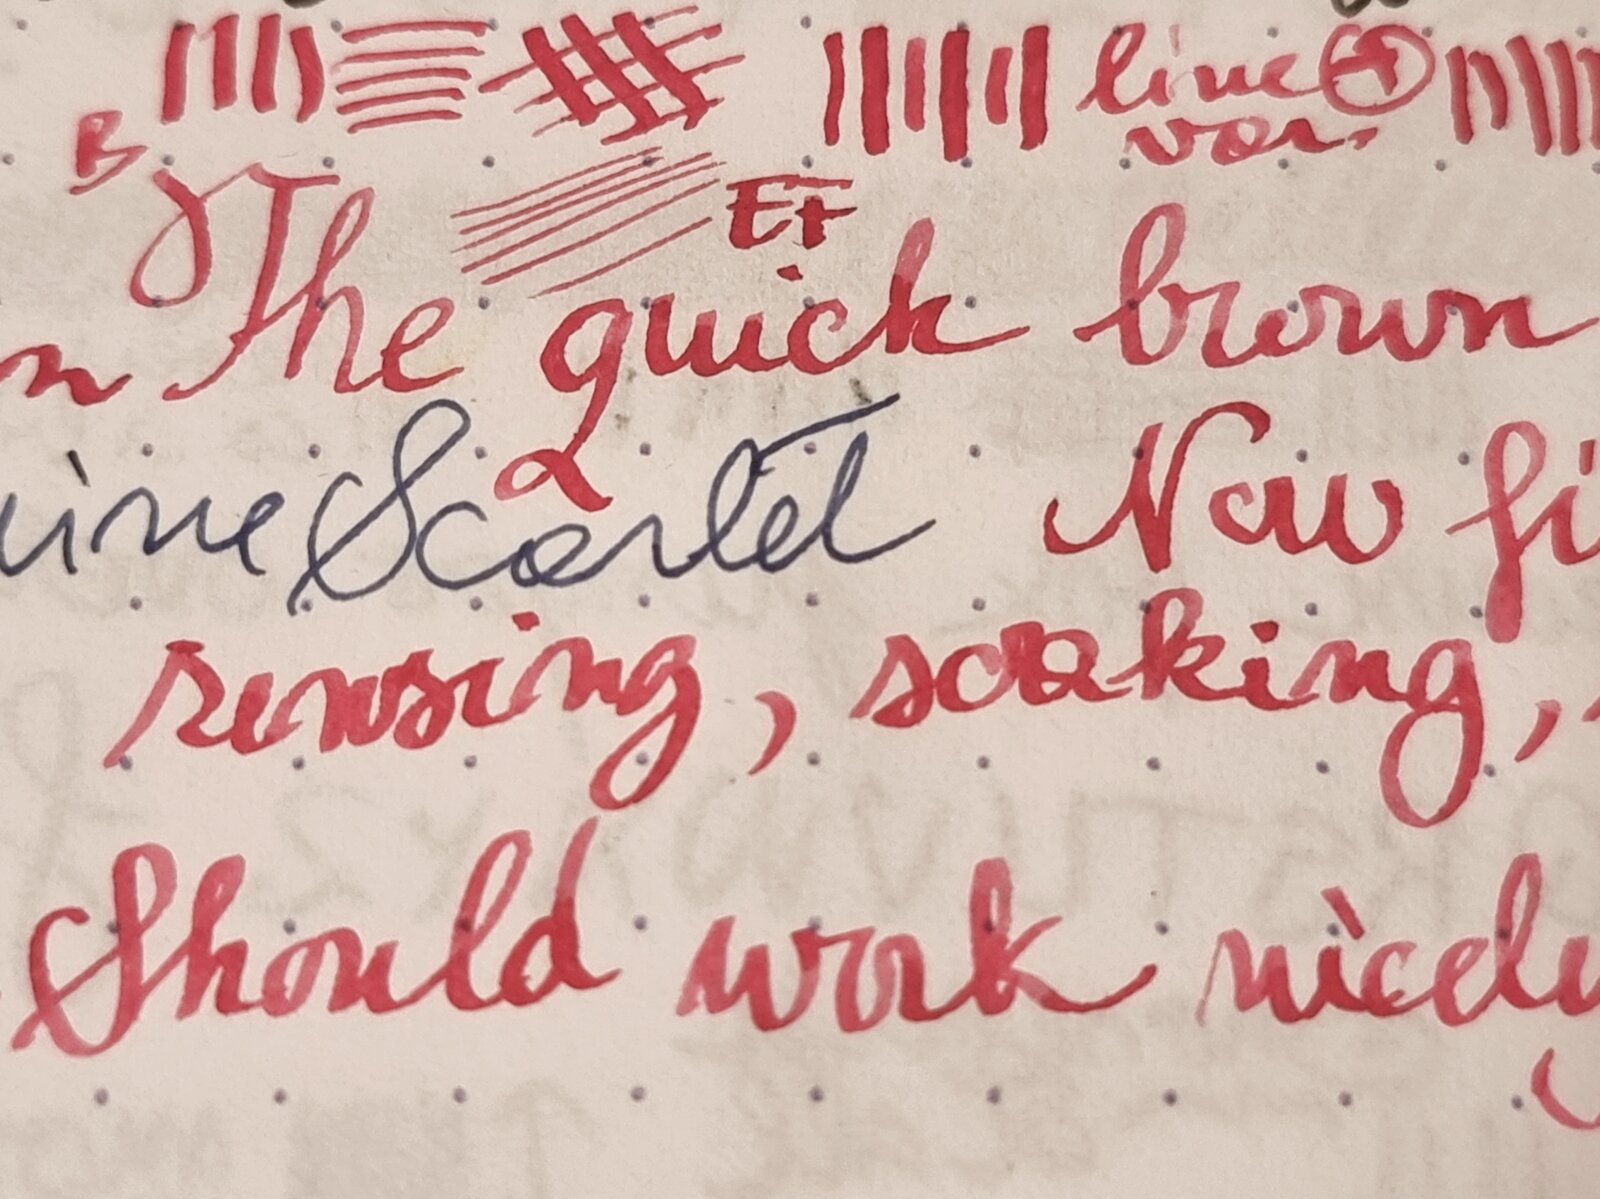 line +
B var.
EF
n The quick brown
Scarlet Now fi
rensing, soaking,
Should work nicely